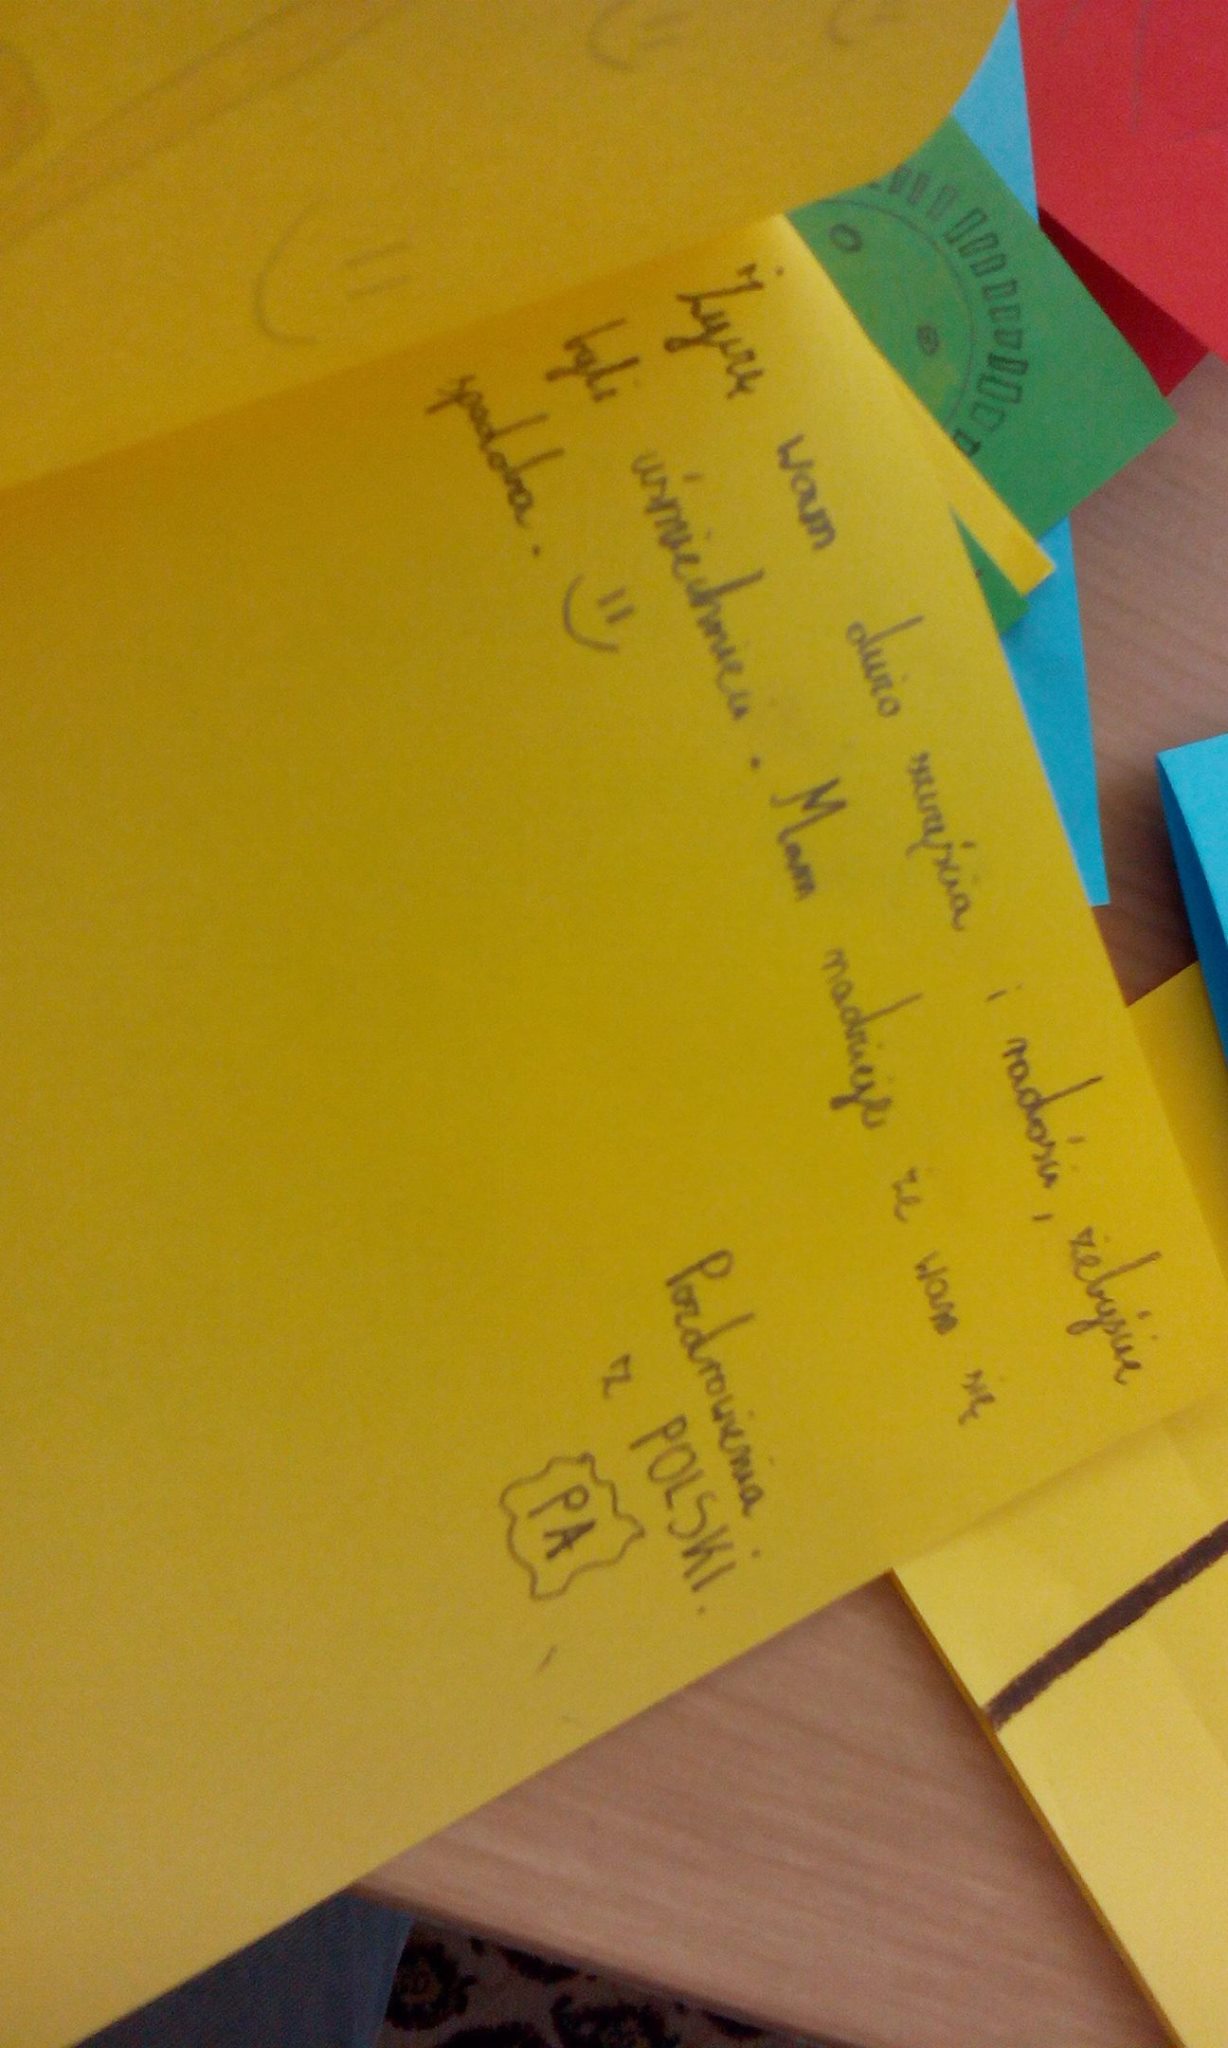 Życzę wam dużo szczęścia i radości, żebyście
byli uśmiechnięci. Mam nadzieję że wam się
spodoba.
Pozdrowienia
z POLSKI.
PA